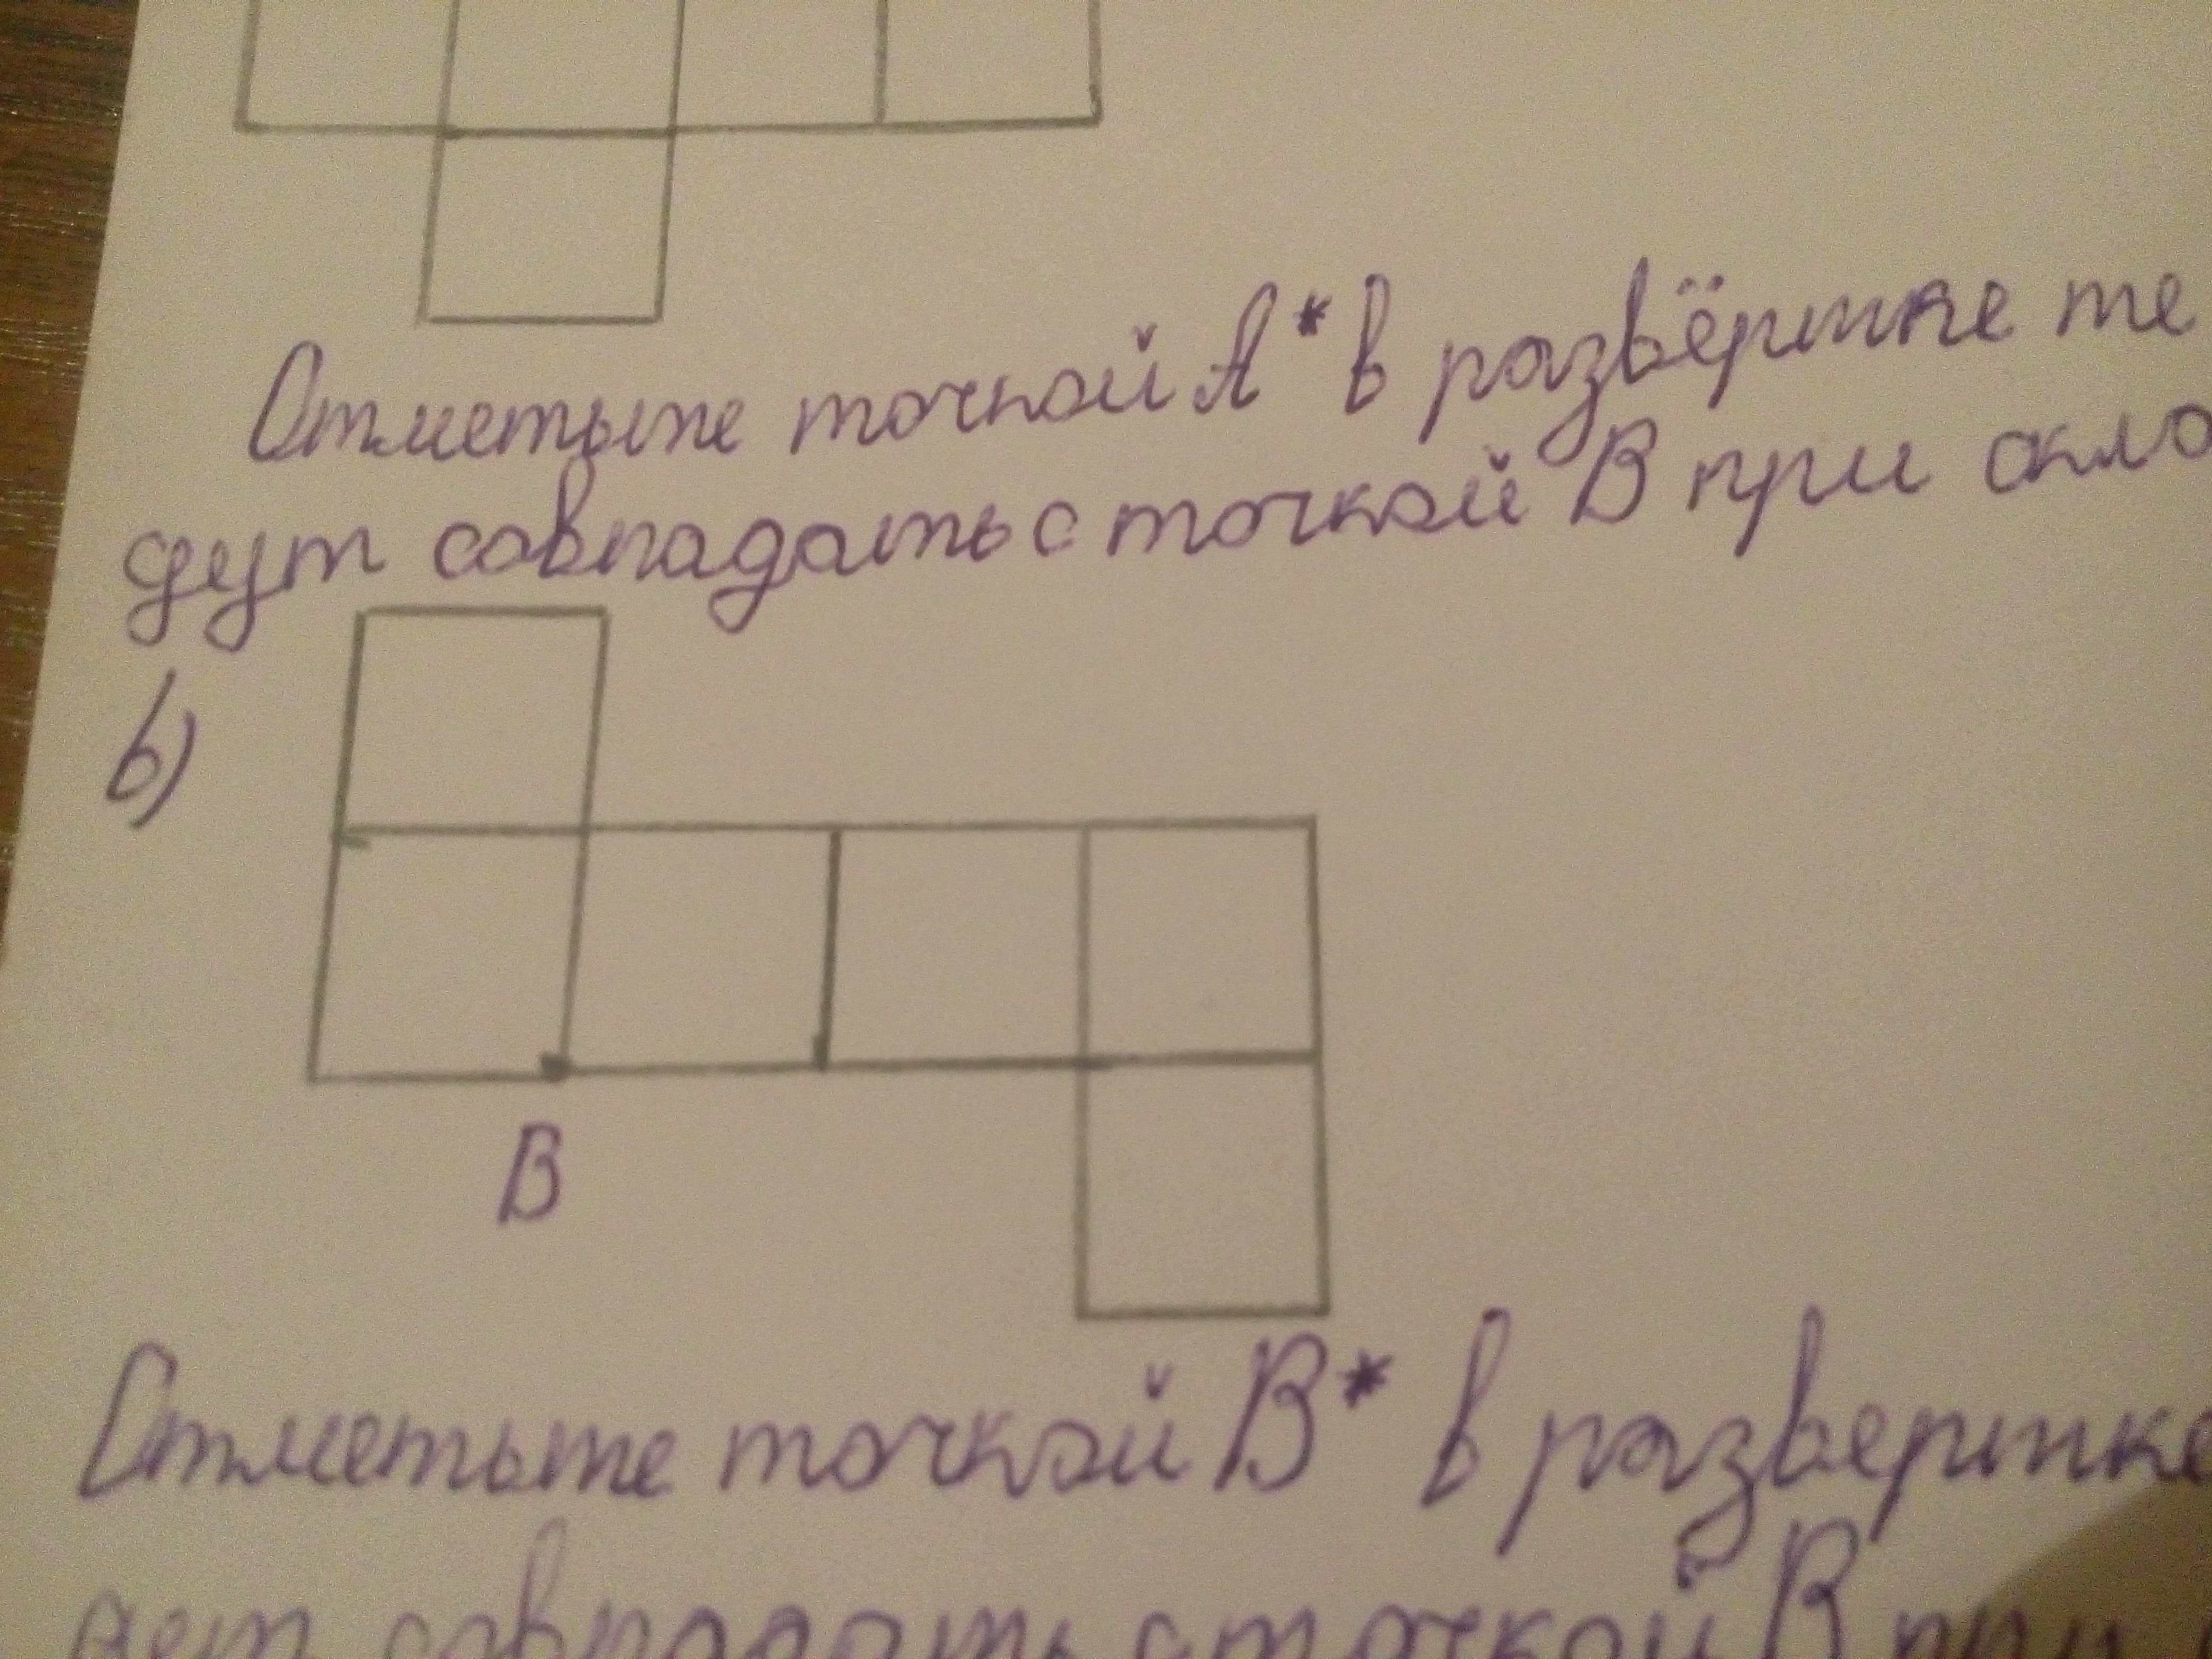 Отметьте точкой А* в развёртке те
дут совпадать с точкой В при скла
b)
В
Отметьте точкой В* в развертке
дет совпадать с точкой В при